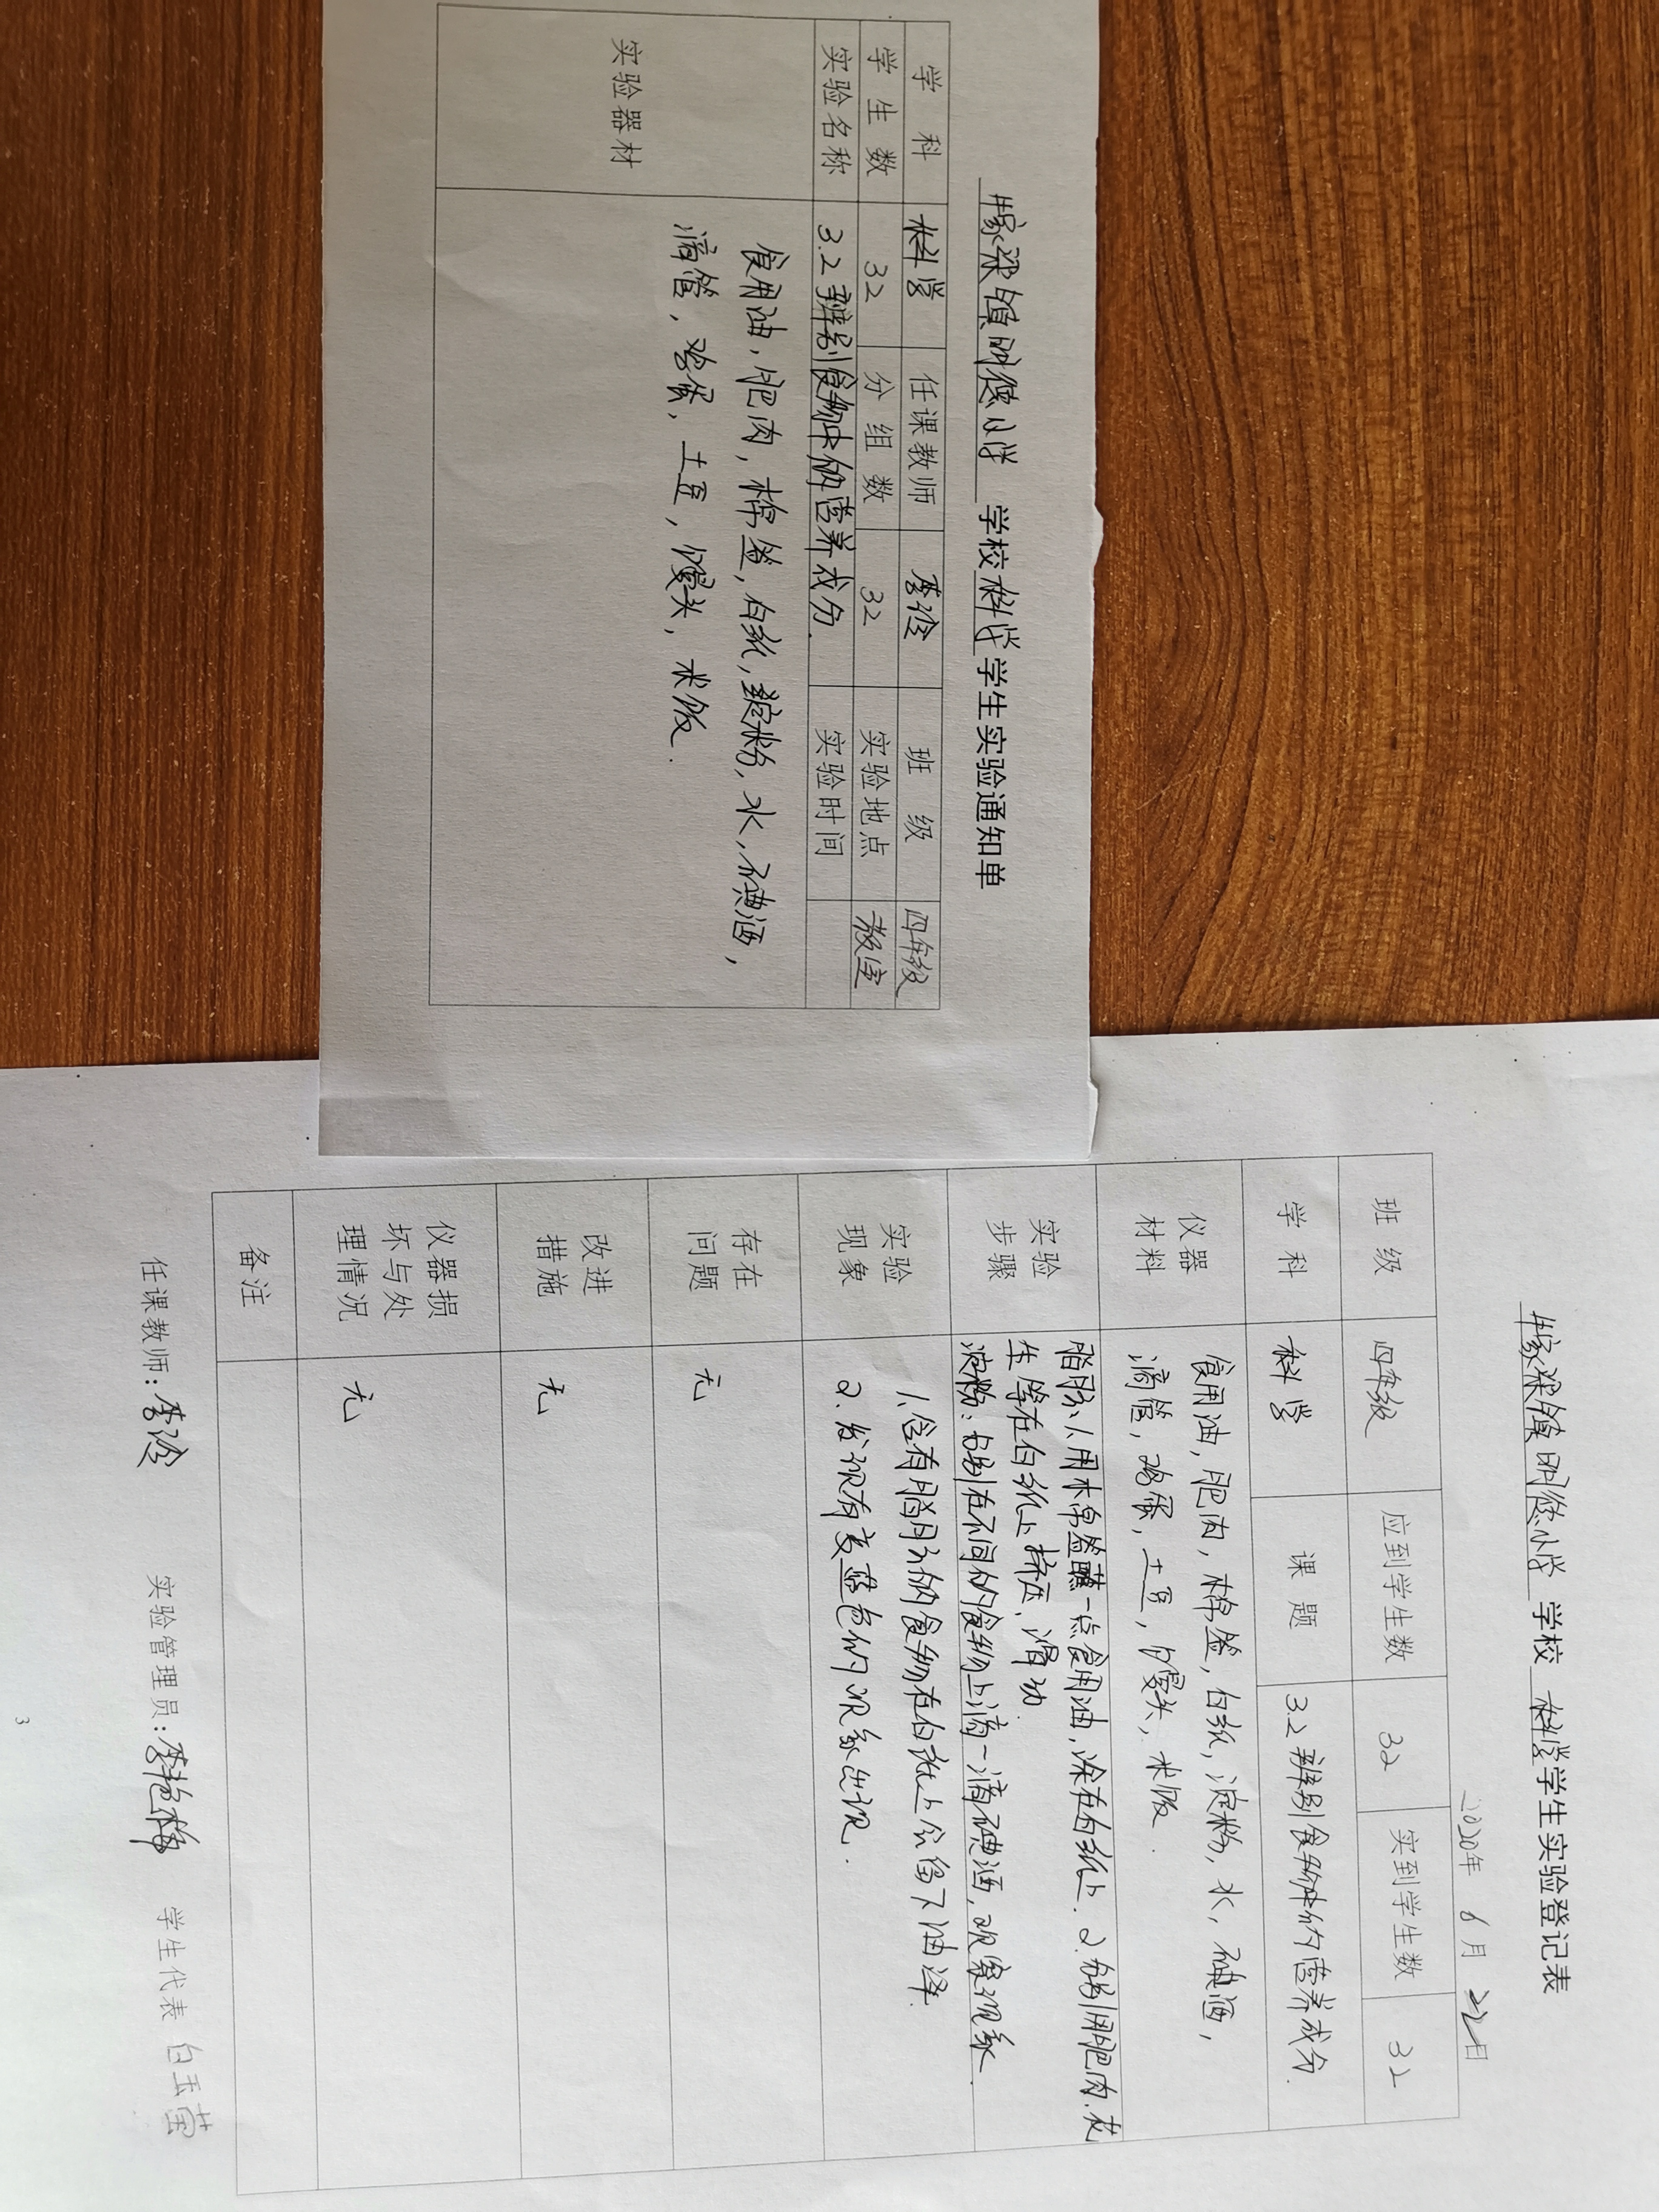 家梁镇明德小学 学校 科学 学生实验通知单
学科 科学 任课教师 李玲 班级 四年级
学生数 32 分组数 32 实验地点 教室
实验名称 3.2辨别食物中的营养成分. 实验时间
实验器材
食用油,肥肉,棉签,白纸,淀粉,水,碘酒,
滴管,鸡蛋,土豆,馒头,米饭.
家梁镇明德小学 学校 科学 学生实验登记表
2020年6月22日
班级 四年级 应到学生数 32 实到学生数 32
学科 科学 课题 3.2辨别食物中的营养成分.
仪器材料
食用油,肥肉,棉签,白纸,淀粉,水,碘酒,
滴管,鸡蛋,土豆,馒头,米饭.
实验步骤
脂肪:1.用棉签蘸一点食用油,涂在白纸上.2.分别用肥肉.花
生等在白纸上挤压、滑动.
淀粉:分别在不同的食物上滴一滴碘酒,观察现象.
实验现象
1.含有脂肪的食物在白纸上会留下油泽.
2.发现有变蓝色的现象出现.
存在问题 无
改进措施 无
仪器损坏与处理情况 无
备注
任课教师:李玲 实验管理员:李艳梅 学生代表 白玉莹
3